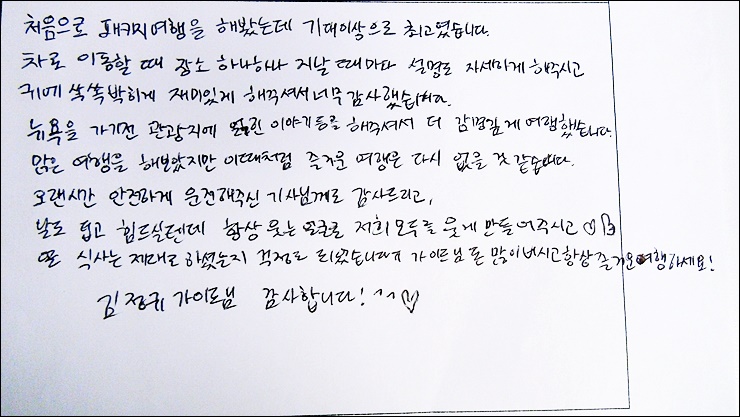 처음으로 패키지여행을 해봤는데 기대이상으로 최고였습니다.
차로 이동할 때 장소 하나하나 지날 때마다 설명도 자세하게 해주시고
귀에 쏙쏙박히게 재미있게 해주셔서너무 감사했습니다.
뉴욕을 가기전 관광지에 얽힌 이야기들을 해주셔서 더 감명깊게 여행했습니다.
많은 여행을 해보았지만 이때처럼 즐거운 여행은 다시 없을 것 같습니다.
오랜시간 안전하게 운전해주신 기사님께도 감사드리고,
날도 덥고 힘드실텐데 항상 웃는 얼굴로 저희 모두를 웃게 만들어주시고
또 식사는 제대로 하셨는지 걱정도 되었습니다ㅠ 가이드님 돈 많이버시고 항상 즐거운여행하세요!
김정귀 가이드님 감사합니다! ^^♡